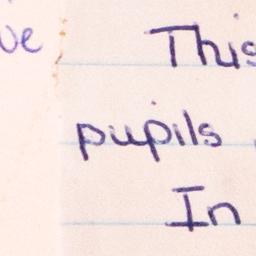 This
pupils.
In